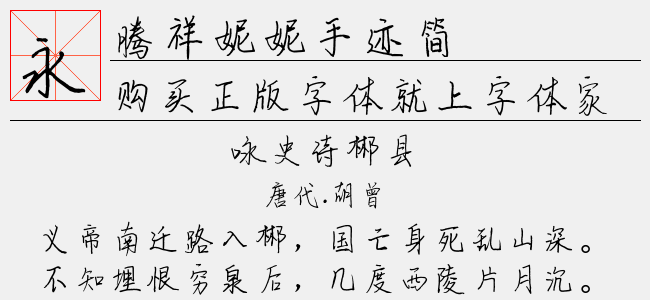 永
腾祥妮妮手迹简
购买正版字体就上字体家
咏史诗郴县
唐代.胡曾
义帝南迁路入郴，国亡身死乱山深。
不知埋恨穷泉后，几度西陵片月沉。